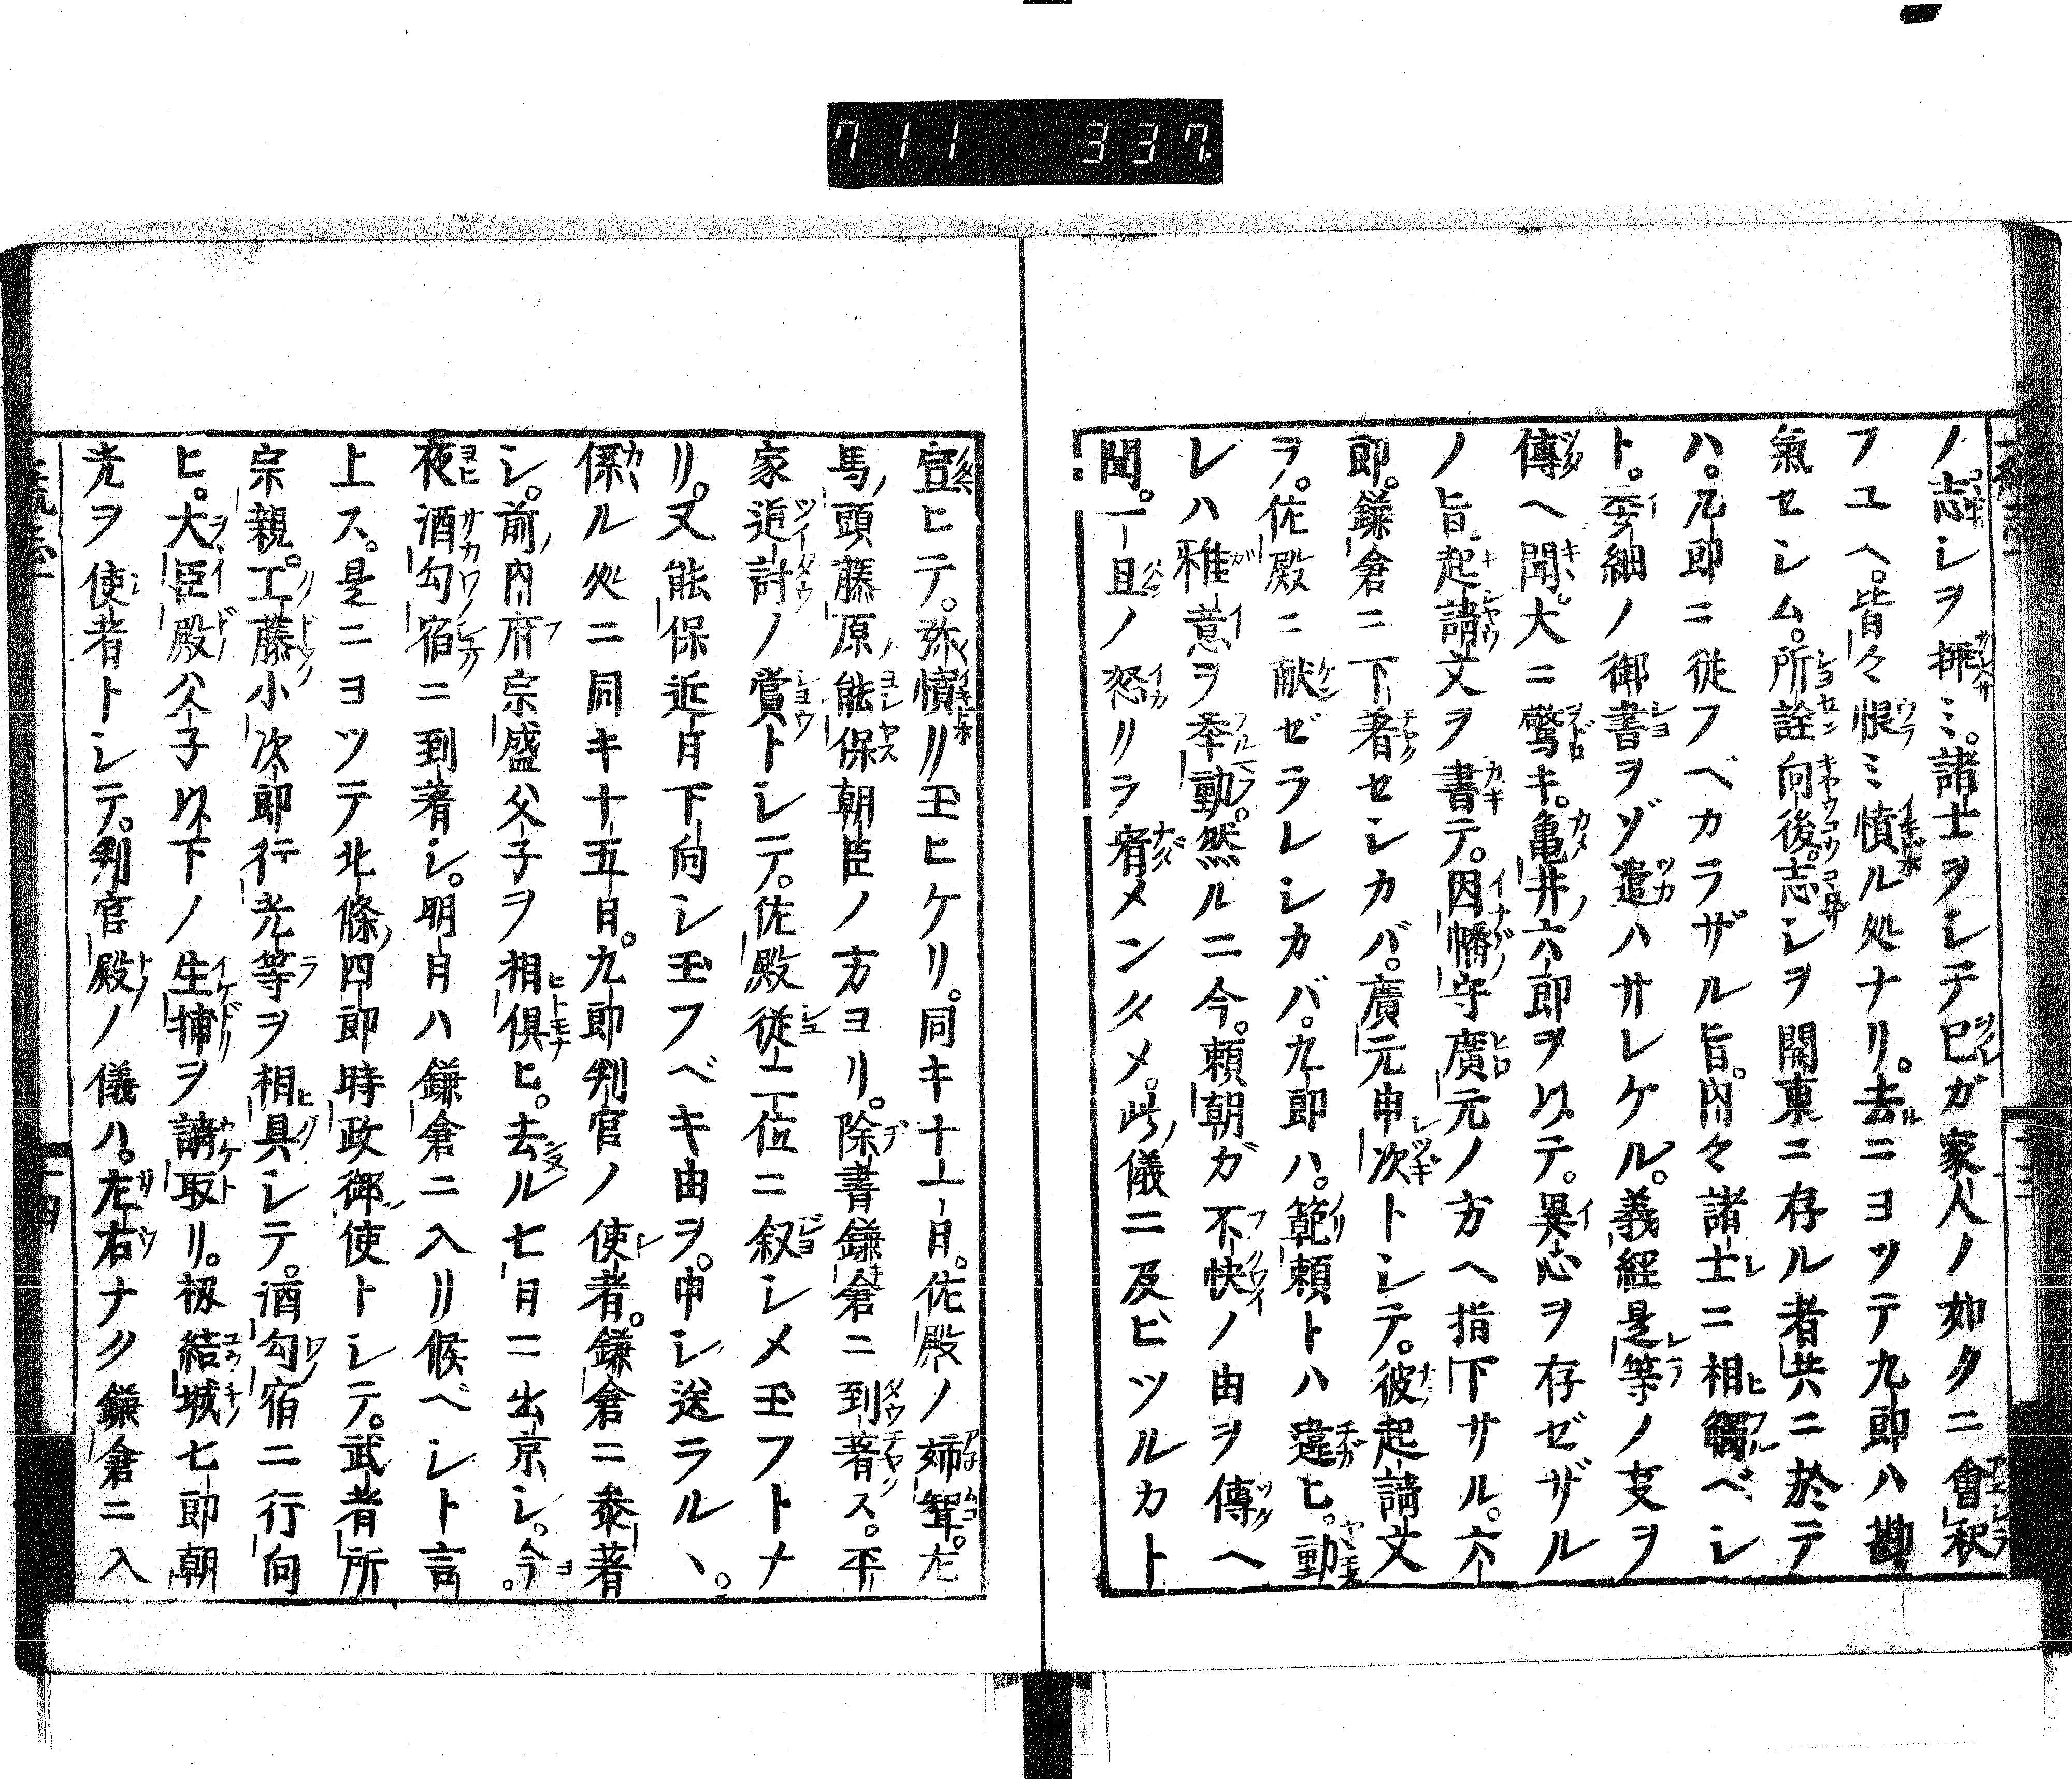 711 337
ノ志シヲ挿ミ。諸士ヲシテ已ガ家人ノ如クニ會釈
フユヘ。皆々恨ミ憤ル処ナリ。去ニヨツテ九郎ハ勘
氣セシム。所詮向後。志シヲ関東ニ存ル者共ニ於テ
ハ。元郎ニ従フベカラザル旨。内々諸士ニ相觸ベシ
ト。委細ノ御書ヲゾ遣ハサレケル。義經是等ノ支ヲ
傳ヘ聞。大ニ驚キ。亀井六郎ヲ以テ。異心ヲ存ゼザル
ノ旨。起請文ヲ書テ。因幡守廣元ノ方ヘ指下サル。六
郎。鎌倉ニ下著セシカバ。廣元申次トシテ。彼起請文
ヲ。佐殿ニ献ゼラレシカバ。九郎ハ。範頼トハ違ヒ。動
レハ雅意ヲ挙動。然ルニ今。頼朝ガ不快ノ由ヲ傳ヘ
聞。一旦ノ怒リラ宥メンタメ。此儀ニ及ビツルカト
宣ヒテ。弥憤リ玉ヒケリ。同キ十一日。佐殿ノ姉聟。左
馬頭藤原能保朝臣ノ方ヨリ。除書鎌倉ニ到著ス。平
家追討ノ賞トシテ。佐殿従二位ニ叙シメ玉フトナ
リ。又能保近日下向シ玉フベキ由ヲ。申シ送ラル、。
係ル処ニ同キ十五日。九郎判官ノ使者。鎌倉ニ参著
シ。前内府宗盛父子ヲ相倶ヒ。去ル七日ニ出京シ。今
夜酒勾宿ニ到著シ。明日ハ鎌倉ニ入リ候ベシト言
上ス。是ニヨツテ北條四郎時政御使トシテ。武者所
宗親。工藤小次郎行光等ヲ相具シテ。酒勾宿ニ行向
ヒ。大臣殿父子以下ノ生捕ヲ請取リ。扨結城七郎朝
光ヲ使者トシテ。判官殿ノ儀ハ。左右ナク鎌倉ニ入